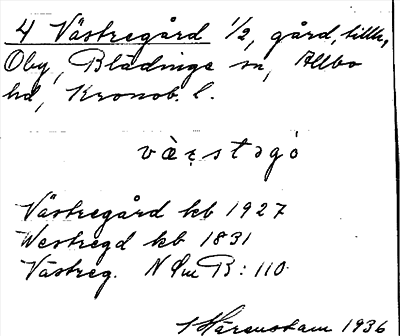 4 Västregård 1/2, gård, tillh.,
Oby, Blädinge sn, Allbo
hd, Kronob. l.
væ̀stəgo
Västregård kb 1927
Westregd kb 1831
Västreg. N Öm B: 110
Härenstam 1936